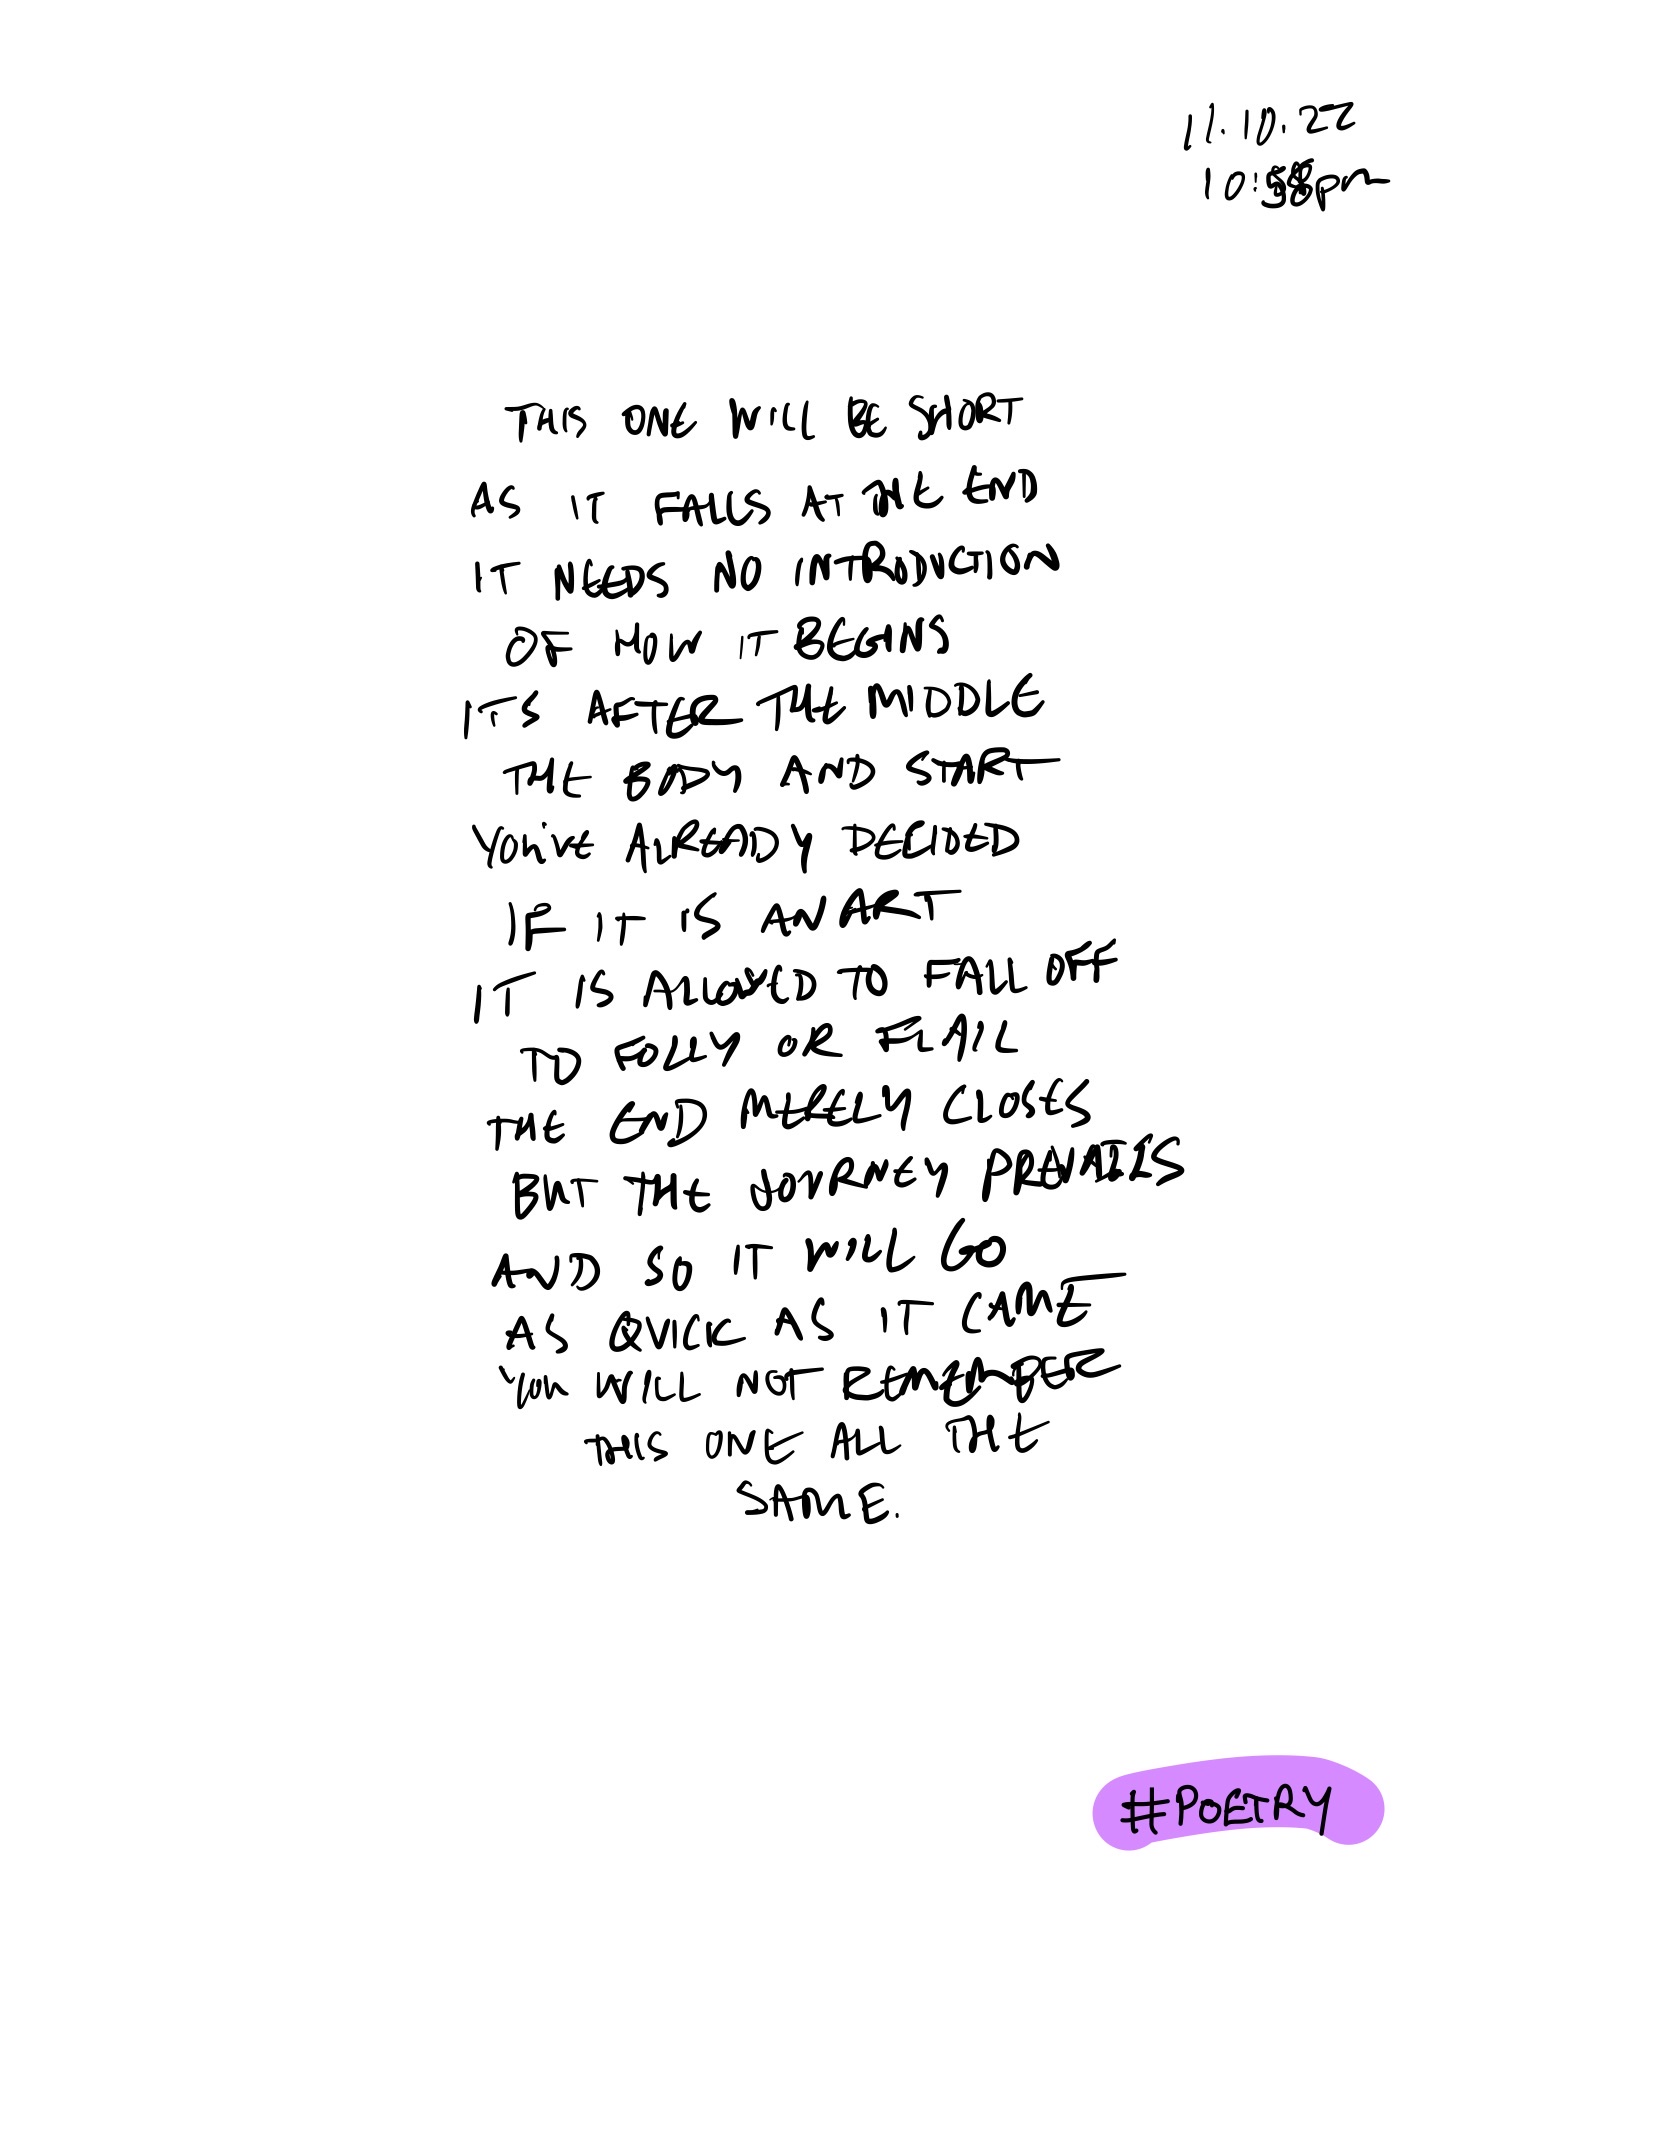 11.10.22
10:58pm
THIS ONE WILL BE SHORT
AS IT FALLS AT THE END
IT NEEDS NO INTRODUCTION
OF HOW IT BEGINS
ITS AFTER THE MIDDLE
THE BODY AND START
YOU'VE ALREADY DECIDED
IF IT IS AN ART
IT IS ALLOWED TO FALL OFF
TO FOLLY OR FLAIL
THE END MERELY CLOSES
BUT THE JOURNEY PREVAILS
AND SO IT WILL GO
AS QUICK AS IT CAME
YOU WILL NOT REMEMBER
THIS ONE ALL THE
SAME.
#POETRY